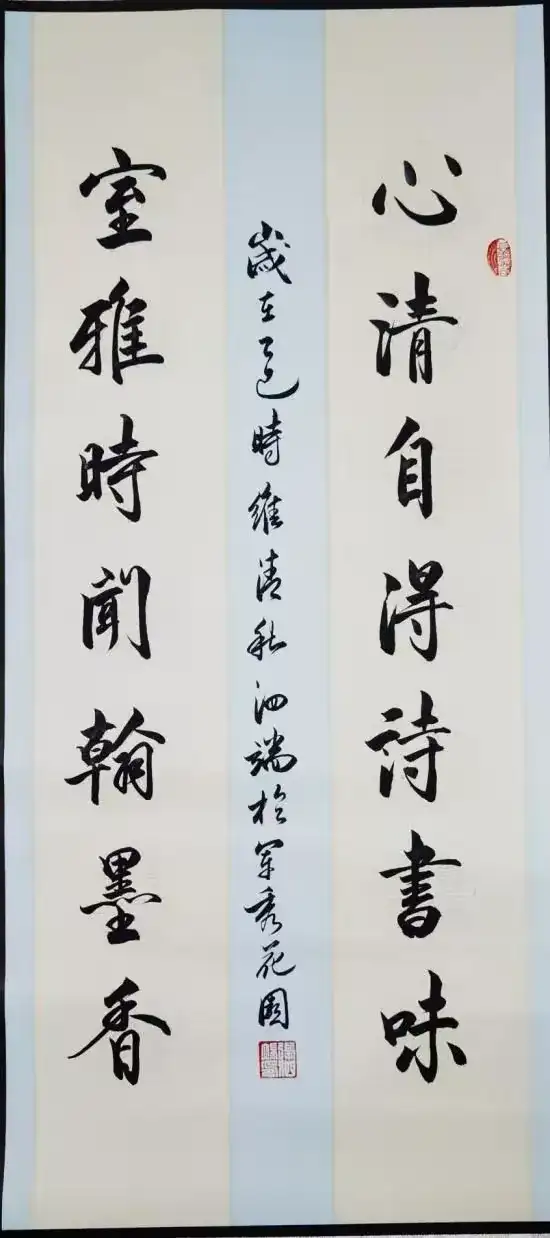 心清自得詩書味
歲在乙巳時維清秋泗端於軍秀花園
室雅時聞翰墨香